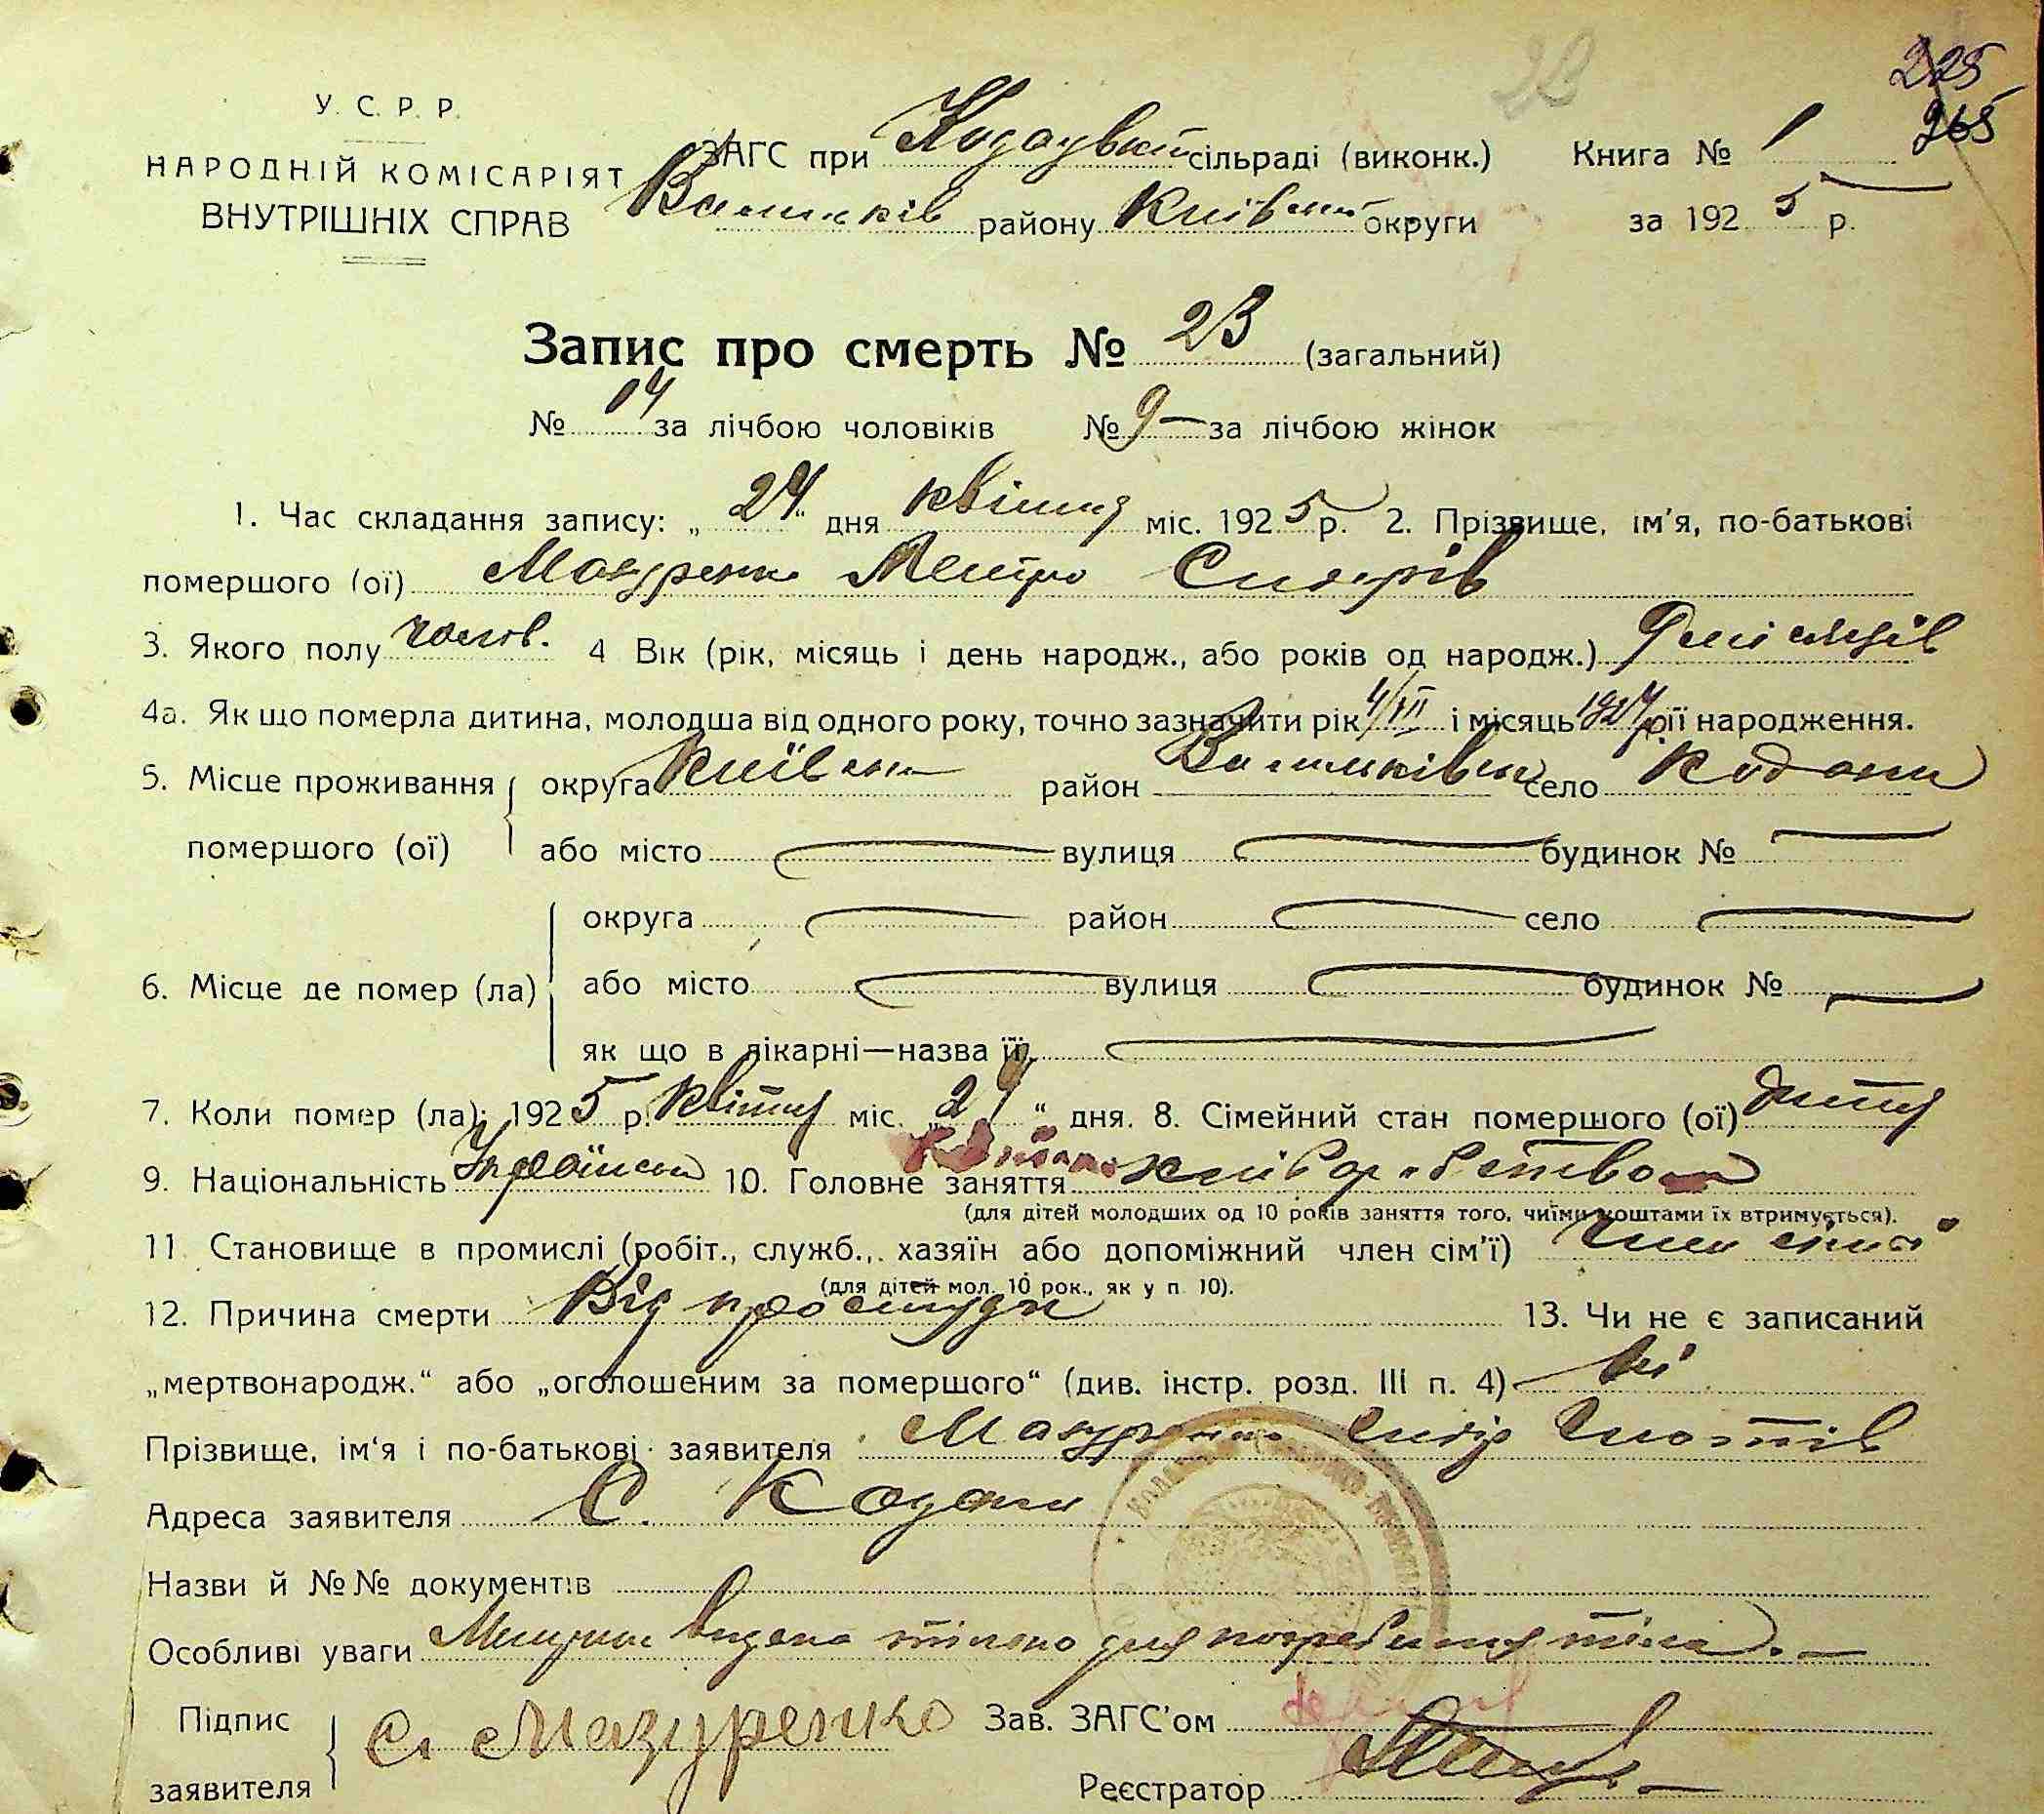 23
225
265
У. С. Р. Р.
НАРОДНІЙ КОМІСАРІЯТ
ВНУТРІШНІХ СПРАВ
ЗАГС при сільраді (виконк.) Книга № 1
району Київської округи за 1925 р.
Запис про смерть № 23 (загальний)
№ 14 за лічбою чоловіків № 9 — за лічбою жінок
1. Час складання запису: „24“ дня квітня міс. 1925 р. 2. Прізвище, ім'я, по-батькові
помершого (ої) Мазуренко
3. Якого полу чолов. 4 Вік (рік, місяць і день народж., або років од народж.) 9 місяців
4а. Як що померла дитина, молодша від одного року, точно зазначити рік і місяць 1924 р її народження.
5. Місце проживання округа Київська район село Кодаки
помершого (ої) або місто — вулиця — будинок № —
округа — район — село —
6. Місце де помер (ла) або місто — вулиця — будинок № —
як що в лікарні—назва її —
7. Коли помер (ла): 1925 р. квітня міс. „24“ дня. 8. Сімейний стан помершого (ої) дитя
9. Національність 10. Головне заняття
(для дітей молодших од 10 років заняття того, чиїми коштами їх втримується).
11. Становище в промислі (робіт., служб., хазяїн або допоміжний член сім'ї) член сім'ї
(для дітей мол. 10 рок., як у п. 10).
12. Причина смерти Від простуди 13. Чи не є записаний
„мертвонародж.“ або „оголошеним за помершого“ (див. інстр. розд. III п. 4) ні
Прізвище, ім'я і по-батькові заявителя Мазуренко
Адреса заявителя С. Кодаки
Назви й №№ документів
Особливі уваги видана тільки для погребення тіла. —
Підпис С. Мазуренко Зав. ЗАГС'ом
заявителя Реєстратор